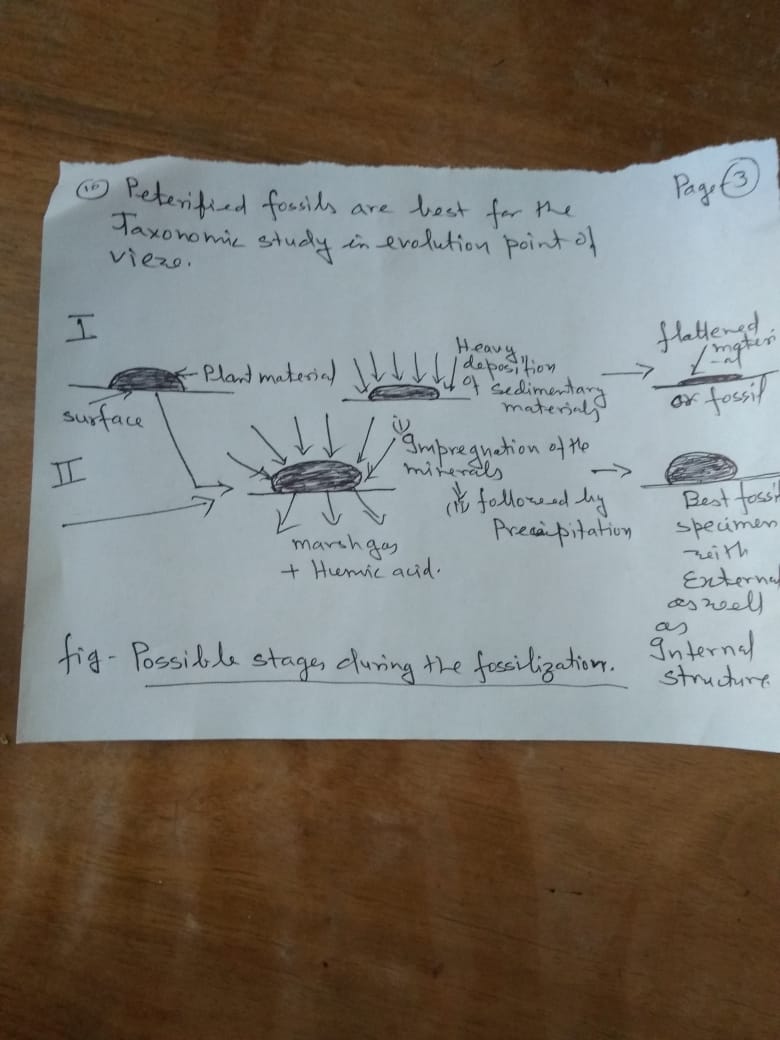 (10) Peterified fossils are best for the
Page-(3)
Taxonomic study in evolution point of
view.
I
Plant material
surface
Heavy
deposition
of sedimentary
materials
flattened
materi
-al
or fossil
II
(i)
Impregnation of the
minerals
(ii) followed by
Precipitation
marsh gas
+ Humic acid.
Best fossil
specimen
with
External
as well
as
Internal
structure
fig- Possible stages during the fossilization.